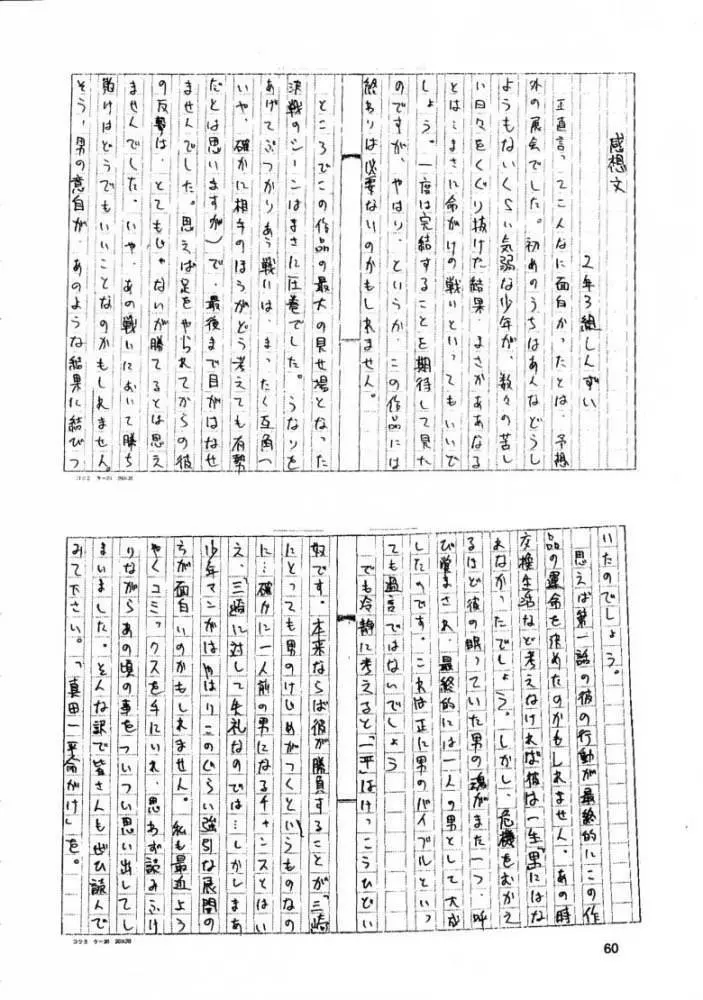 感想文
２年３組しんずい
正直言ってこんなに面白かったとは、予想
外の展会でした。初めのうちはあんなどうし
ようもないくらい気弱な少年が、数々の苦し
い日々をくぐり抜けた結果、まさかああなる
とは…まさに命がけの戦いといってもいいで
しょう。一度は完結することを期待して見た
のですが、やはり、というか、この作品には
終わりは必要ないのかもしれません。
ところでこの作品の最大の見せ場となった
決戦のシーンはまさに圧巻でした。うなりを
あげてぶつかりあう戦いは、まったく互角（
いや、確かに相手のほうがどう考えても有勢
だとは思いますが）で、最後まで目がはなせ
ませんでした。思えば足をやられてからの彼
の反勢は、とてもじゃないが勝てるとは思え
ませんでした。いや、あの戦いにおいて勝ち
負けはどうでもいいことなのかもしれません。
そう、男の意自が、あのような結果に結びつ
コクヨ ケー20 20×20
いたのでしょう。
思えば第一話の彼の行動が最終的にこの作
品の運命を決めたのかもしれません。あの時
交換生活など考えなければ彼は一生「男」にはな
れなかったでしょう。しかし、危機をむかえ
るほど彼の眠っていた男の魂がまた一つ、呼
び覚まされ、最終的には一人の男として大成
したのです。これは正に男のバイブルといっ
ても過言ではないでしょう
でも冷静に考えると「一平」はけっこうひどい
奴です。本来ならば彼が勝負することが「三崎」
にとっても男のけじめがつくというものなの
に…確かに一人前の男になるチャンスとはい
え、「三崎」に対して失礼なのでは…しかしまあ
少年マンガはやはりこのぐらい強引な展開の
ちが面白いのかもしれません。私も最近よう
やくコミックスを手にいれ、思わず読みふけ
りながらあの頃の事をついつい思い出してし
まいました。そんな訳で皆さんも ぜひ読んで
みて下さい。「真田一平命がけ」を。
コクヨ ケー20 20×20
60